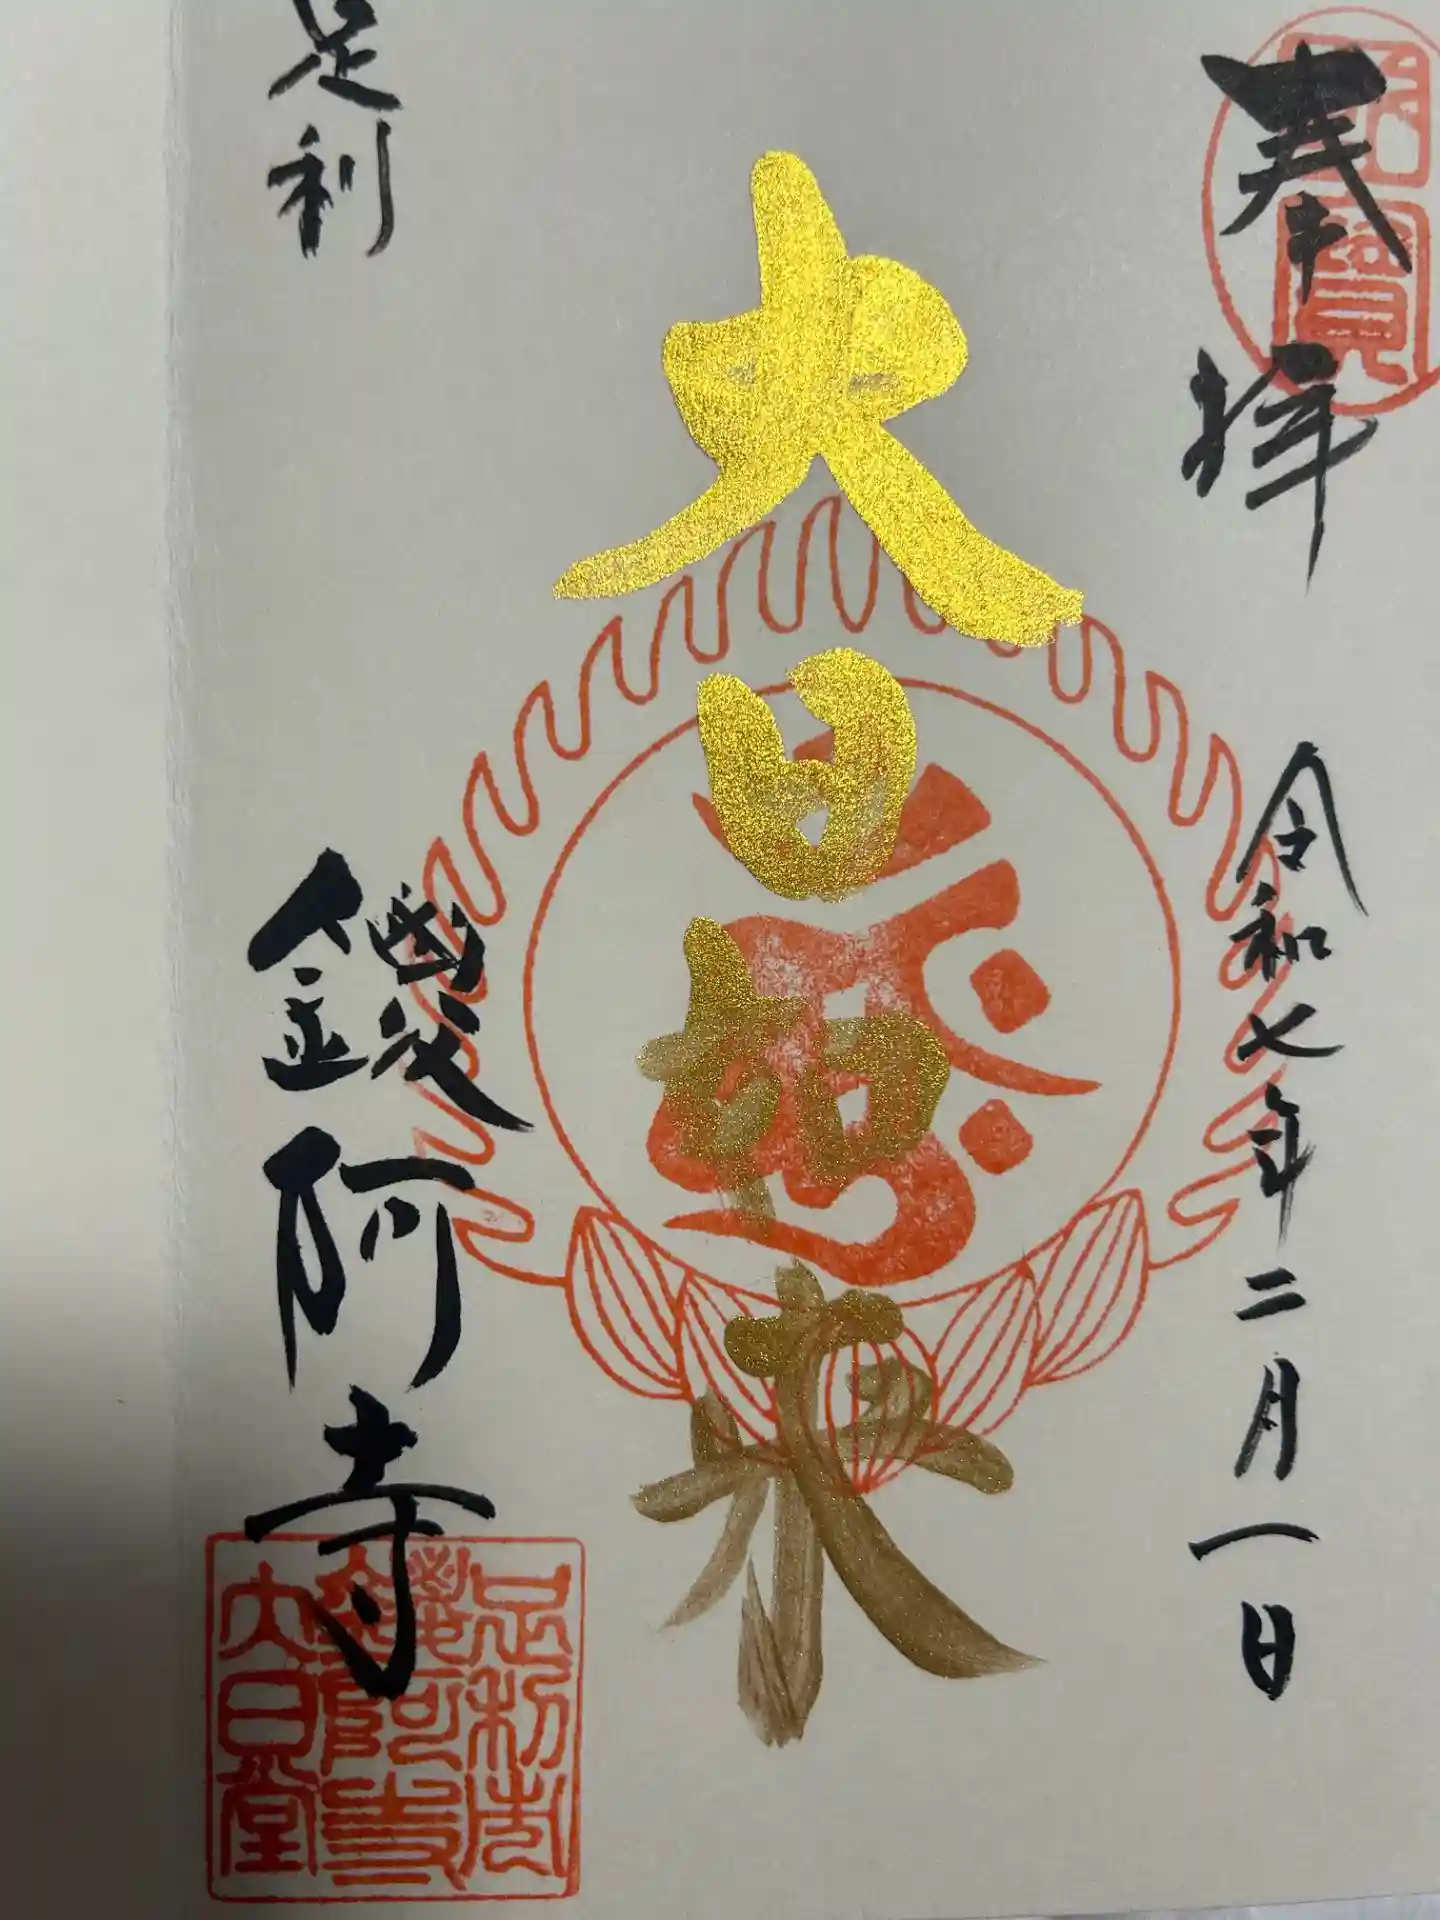 奉拝
令和七年二月一日
大日如来
足利
鑁阿寺
足利市
鑁阿寺
大日堂